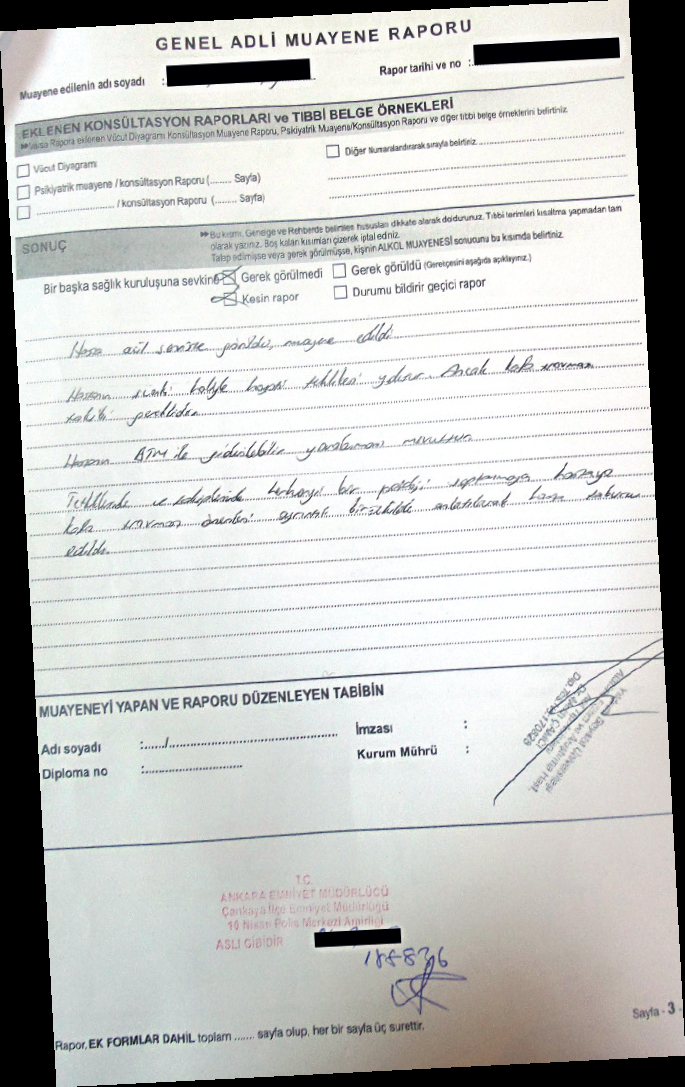 GENEL ADLİ MUAYENE RAPORU
Muayene edilenin adı soyadı :
Rapor tarihi ve no :
EKLENEN KONSÜLTASYON RAPORLARI ve TIBBİ BELGE ÖRNEKLERİ
Rapora eklenen Vücut Diyagramı Konsültasyon Muayene Raporu, Psikiyatrik Muayene/Konsültasyon Raporu ve diğer tıbbi belge örneklerini belirtiniz.
Vücut Diyagramı
Diğer Numaralandırarak sırayla belirtiniz
Psikiyatrik muayene / konsültasyon Raporu (........ Sayfa)
/ konsültasyon Raporu (........ Sayfa)
SONUÇ
Bu kısmı, Genelge ve Rehberde belirtilen hususları dikkate alarak doldurunuz. Tıbbi terimleri kısaltma yapmadan tam
olarak yazınız. Boş kalan kısımları çizerek iptal ediniz.
Talep edilmişse veya gerek görülmüşse, kişinin ALKOL MUAYENESİ sonucunu bu kısımda belirtiniz.
Bir başka sağlık kuruluşuna sevkine Gerek görülmedi Gerek görüldü (Gerekçesini aşağıda açıklayınız.)
Kesin rapor Durumu bildirir geçici rapor
acil serviste görüldü, muayene edildi.
hayati tehlikesi yoktur. Ancak kafa travması
takibi gereklidir.
BTM ile giderilebilir yaralanması mevcuttur.
Tetkiklerinde ve takiplerinde herhangi bir patoloji saptanmayan hastaya
kafa travması önerileri ayrıntılı bir şekilde anlatılarak hasta taburcu
edildi.
MUAYENEYİ YAPAN VE RAPORU DÜZENLEYEN TABİBİN
Adı soyadı :
İmzası :
Diploma no :
Kurum Mührü :
T.C.
ANKARA EMNİYET MÜDÜRLÜĞÜ
Çankaya İlçe Emniyet Müdürlüğü
10 Nisan Polis Merkezi Amirliği
ASLI GİBİDİR
188836
Rapor, EK FORMLAR DAHİL toplam ....... sayfa olup, her bir sayfa üç surettir.
Sayfa - 3 -